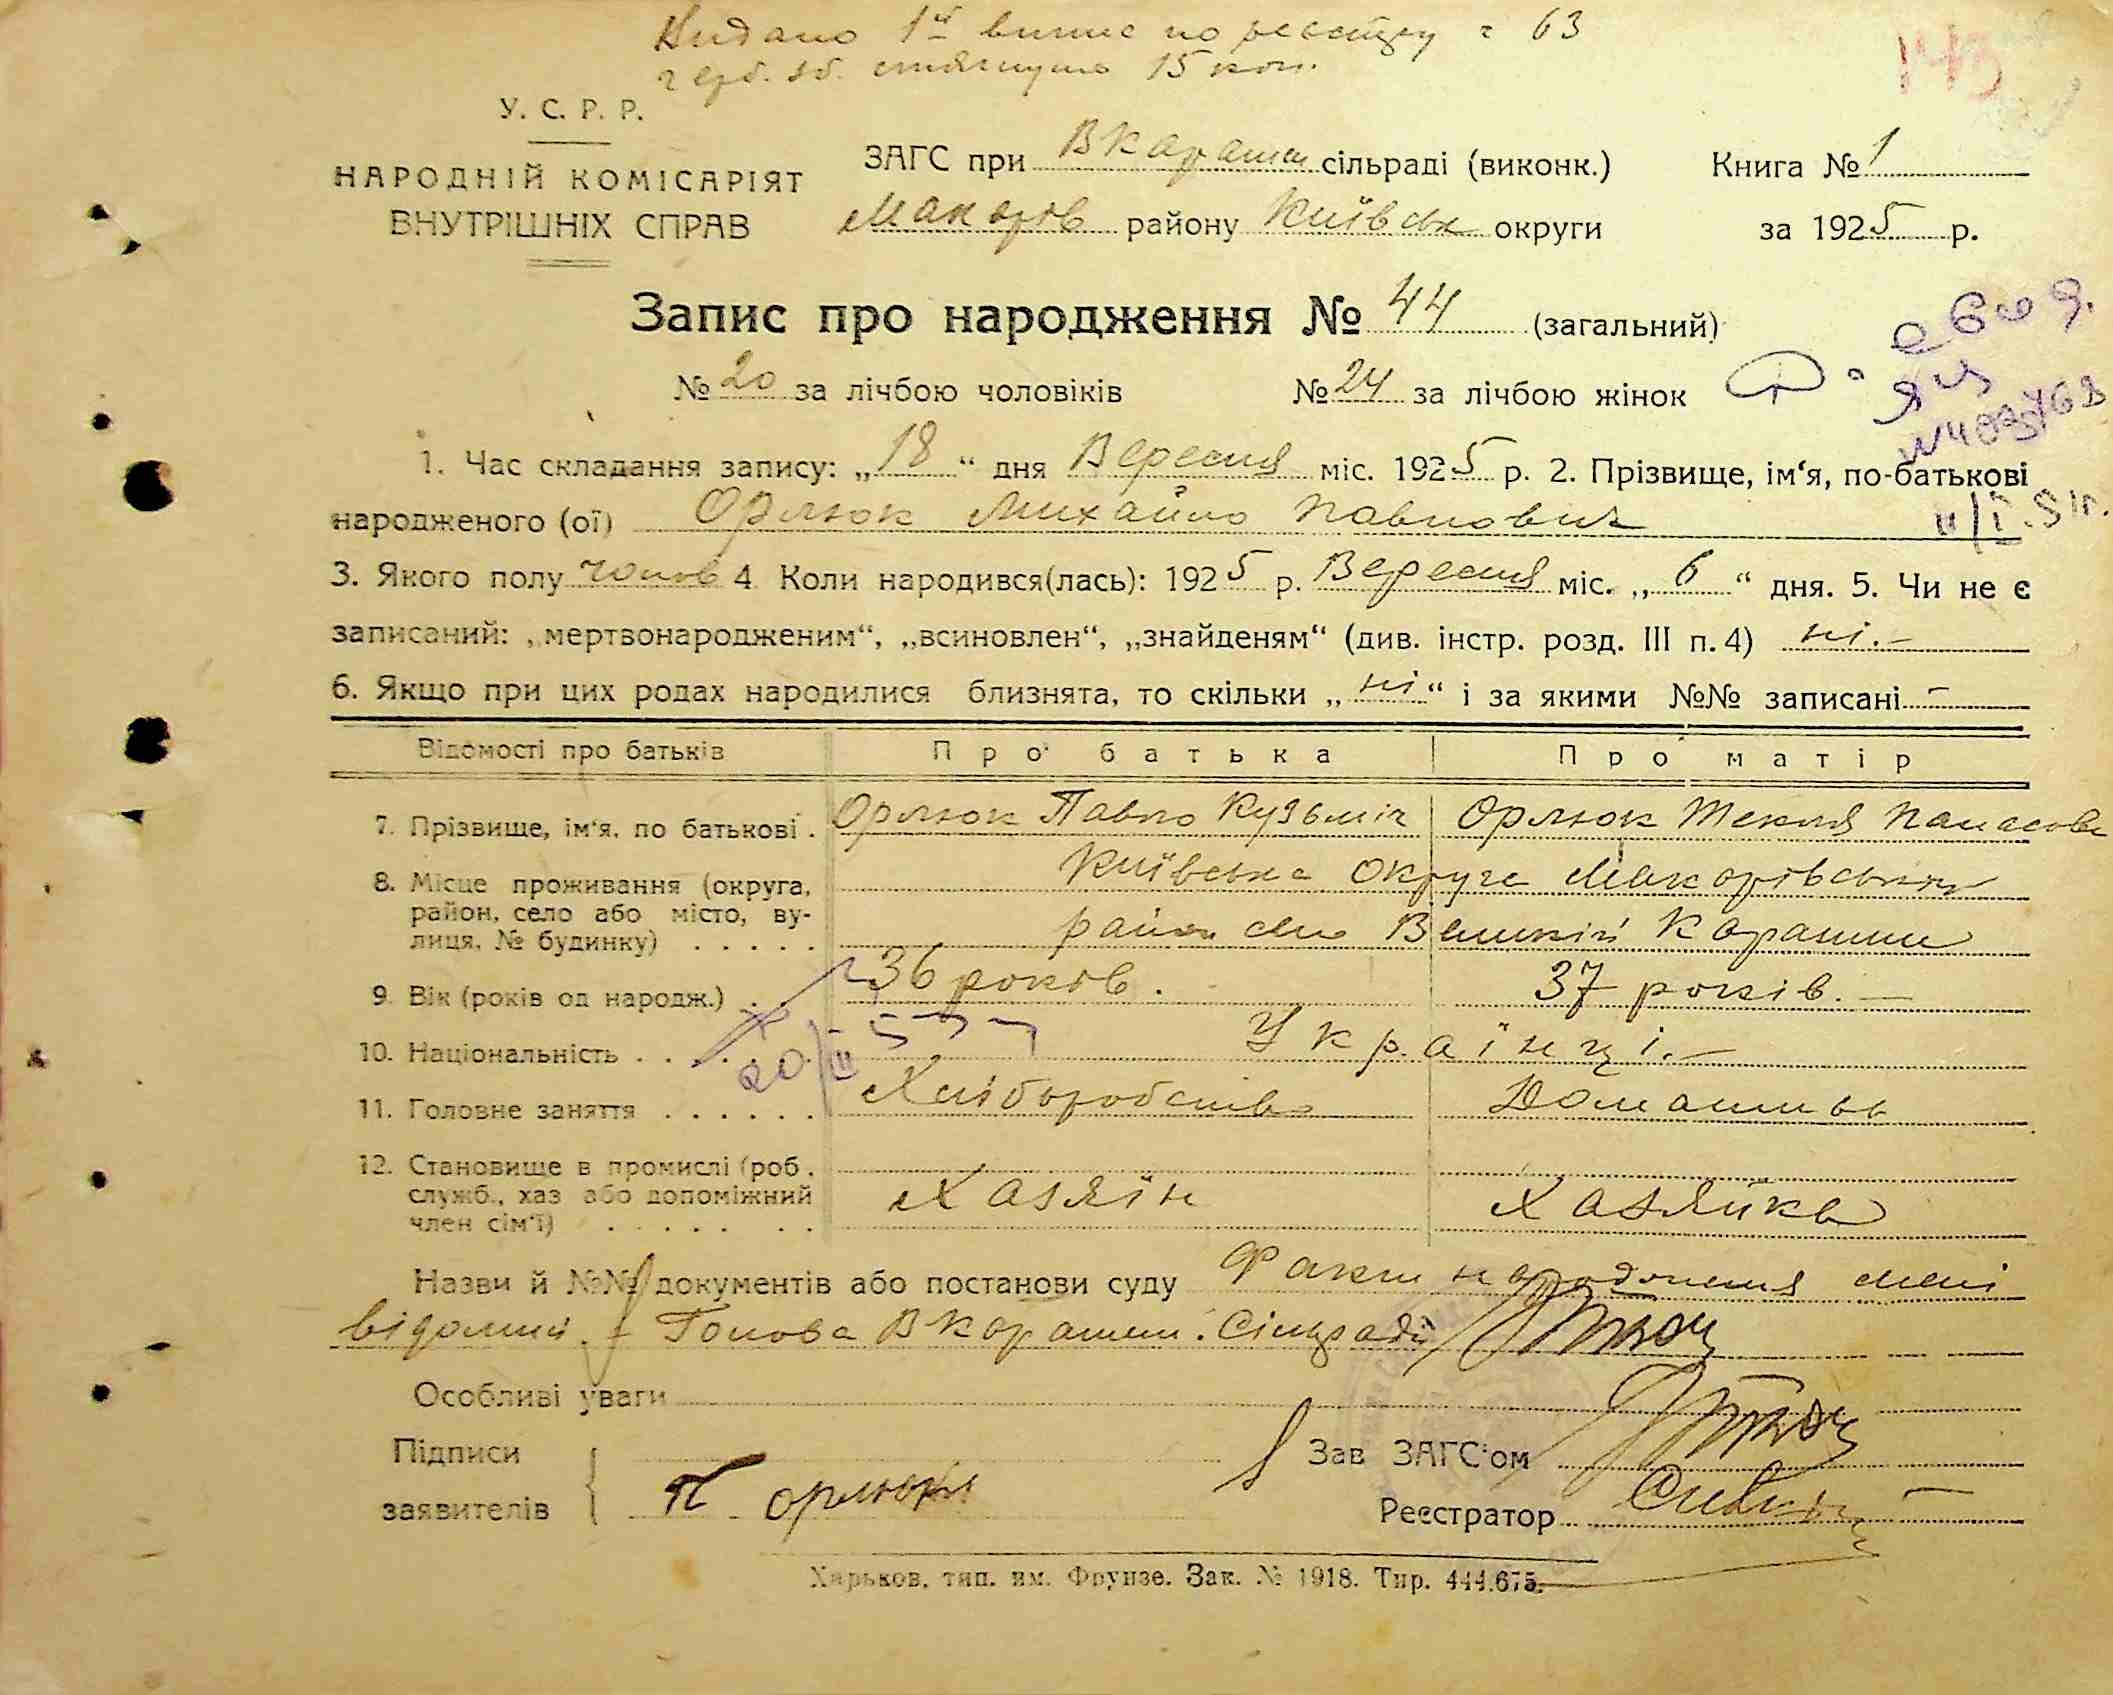 Видано 1й випис по реєстру № 63
герб. зб. стягнуто 15 коп.
143
У. С. Р. Р.
НАРОДНІЙ КОМІСАРІЯТ
ВНУТРІШНІХ СПРАВ
ЗАГС при ВКарашен сільраді (виконк.) Книга № 1
Макорів району Київськ округи за 1925 р.
Запис про народження № 44 (загальний)
№ 20 за лічбою чоловіків № 24 за лічбою жінок
1. Час складання запису: „18“ дня Вересня міс. 1925 р. 2. Прізвище, ім‘я, по-батькові
народженого (ої) Орлюк Михайло Павлович
3. Якого полу чолов 4 Коли народився(лась): 1925 р. Вересня міс. „6“ дня. 5. Чи не є
записаний: „мертвонародженим“, „всиновлен“, „знайденям“ (див. інстр. розд. III п. 4) ні.-
6. Якщо при цих родах народилися близнята, то скільки „ні“ і за якими №№ записані -
Відомості про батьків Про батька Про матір
7. Прізвище, ім‘я, по батькові . Орлюк Павло Кузьміч Орлюк Текля Панасова
8. Місце проживання (округа, Київська округа Макорівський
район, село або місто, ву- район село Великий Карашин
лиця, № будинку) . . . . .
9. Вік (років од народж.) . . 36 років. 37 років. —
10. Національність . . . . . Українці. —
11. Головне заняття . . . . . . Хліборобство Домашнь
12. Становище в промислі (роб.
служб., хаз або допоміжний Хазяїн Хазяйка
член сім‘ї) . . . . . . .
Назви й №№ документів або постанови суду Факт народження мені
відомий. Голова ВКарашен. Сільради
Особливі уваги
Підписи
заявителів П Орлюк
Зав ЗАГС‘ом
Реєстратор
Харьков, тип. им. Фрунзе. Зак. № 1918. Тир. 444.675.